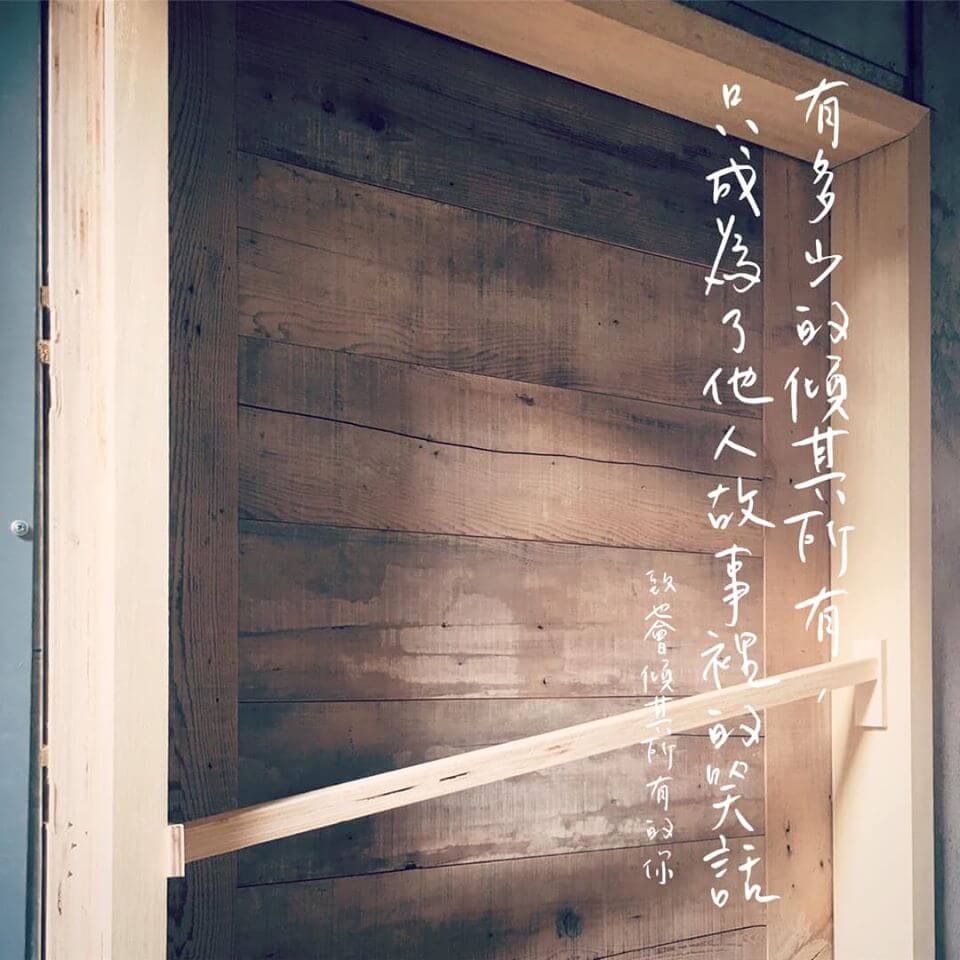 有多少的傾其所有，
只成為了他人故事裡的笑話
致也會傾其所有的你